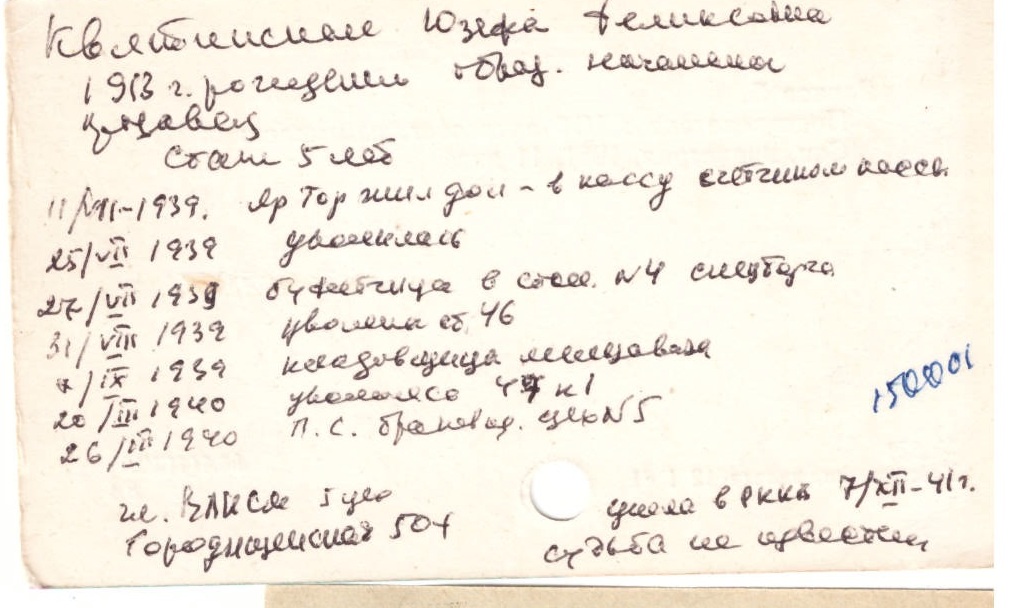 Квятковская Юзефа Феликсовна
1913 г. рождения образ. начальное
продавец
Стаж 5 лет
11/VII-1939. Яр Тор жил дом - в кассу счетчиком кассы
25/VII 1939 уволилась
27/VII 1939 буфетчица в стол. №4 спецторга
31/VIII 1939 уволена ст. 46
7/IX 1939 кладовщица
20/III 1940 уволился 47 к 1
26/III 1940 П.С. браковщ. цех №5
150001
чл. ВЛКСМ 5 цех
Городищенская 50
ушла в РККА 7/XII-41г.
судьба не известна